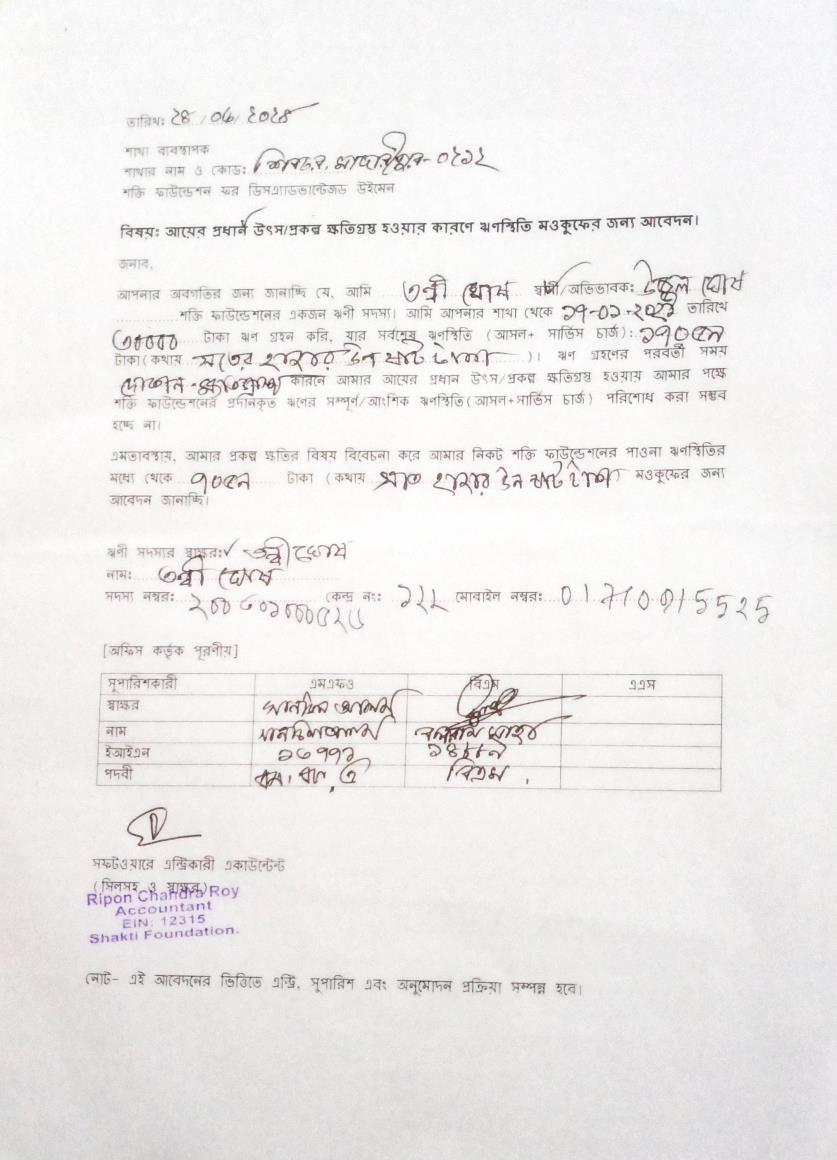 তারিখ: ২৪/০৬/২০২৪
শাখা ব্যবস্থাপক
শাখার নাম ও কোড: শিবচর, মাদারীপুর-০২১২
শক্তি ফাউন্ডেশন ফর ডিসএ্যাডভান্টেজড উইমেন
বিষয়: আয়ের প্রধান উৎস/প্রকল্প ক্ষতিগ্রস্ত হওয়ার কারণে ঋণস্থিতি মওকুফের জন্য আবেদন।
জনাব,
আপনার অবগতির জন্য জানাচ্ছি যে, আমি তন্বী ঘোষ স্বামী/অভিভাবক: উজ্জ্বল ঘোষ
শক্তি ফাউন্ডেশনের একজন ঋণী সদস্য। আমি আপনার শাখা থেকে তারিখে
৩০০০০ টাকা ঋণ গ্রহন করি, যার সর্বশেষ ঋণস্থিতি (আসল+ সার্ভিস চার্জ): ১৭০৫৯
টাকা(কথায় সতের হাজার উনষাট টাকা )। ঋণ গ্রহণের পরবর্তী সময়
দোকান ক্ষতিগ্রস্থ কারনে আমার আয়ের প্রধান উৎস/প্রকল্প ক্ষতিগ্রস্ত হওয়ায় আমার পক্ষে
শক্তি ফাউন্ডেশনের প্রদানকৃত ঋণের সম্পূর্ণ/আংশিক ঋণস্থিতি(আসল+সার্ভিস চার্জ) পরিশোধ করা সম্ভব
হচ্ছে না।
এমতাবস্থায়, আমার প্রকল্প ক্ষতির বিষয় বিবেচনা করে আমার নিকট শক্তি ফাউন্ডেশনের পাওনা ঋণস্থিতির
মধ্যে থেকে ৭০৫৯ টাকা (কথায় সাত হাজার উনষাট টাকা মওকুফের জন্য
আবেদন জানাচ্ছি।
ঋণী সদস্যর স্বাক্ষর: তন্বী ঘোষ
নাম: তন্বী ঘোষ
সদস্য নম্বর: কেন্দ্র নং: ১২২ মোবাইল নম্বর: 01710915525
[অফিস কর্তৃক পূরণীয়]
সুপারিশকারী এমএফও বিএম এএম
স্বাক্ষর
নাম
ইআইএন ১৬৭৭১
পদবী এম, এফ, ও বিএম
সফটওয়ারে এন্ট্রিকারী একাউন্টেন্ট
(সিলসহ ও স্বাক্ষর)
Ripon Chandra Roy
Accountant
EIN: 12315
Shakti Foundation.
নোট- এই আবেদনের ভিত্তিতে এন্ট্রি, সুপারিশ এবং অনুমোদন প্রক্রিয়া সম্পন্ন হবে।